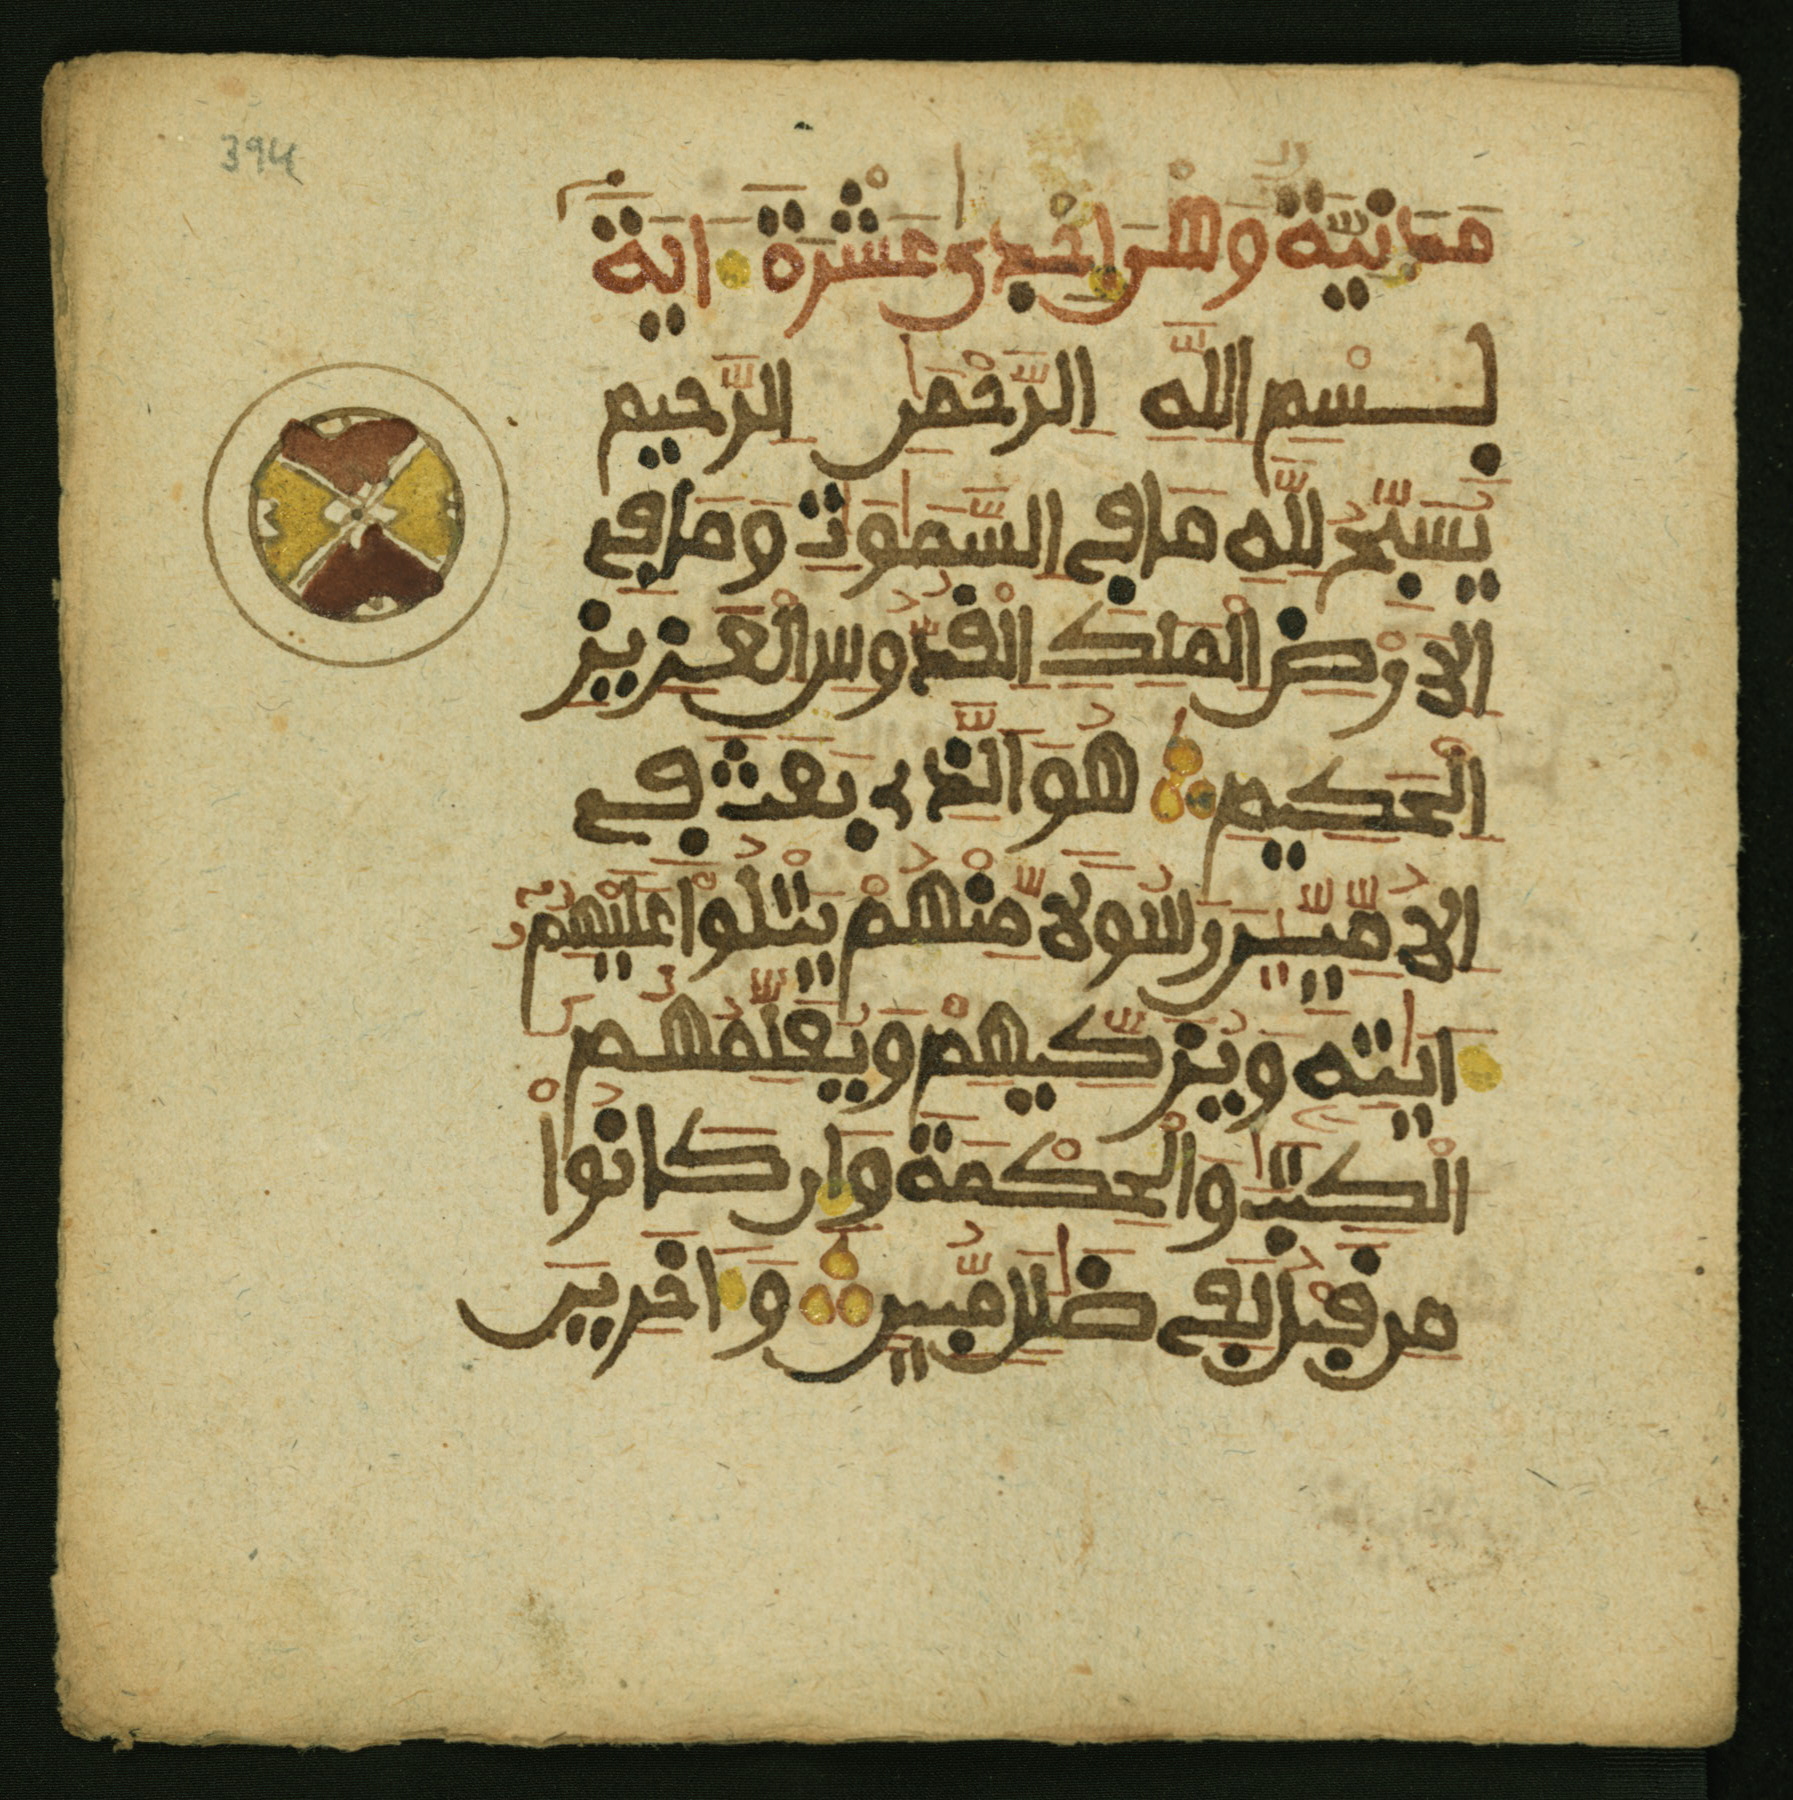 394
مَدَنِيَّةٌ وَهْىَ إِحْدٰى عَشْرَةَ ءَايَةً
بِسْمِ اللَّهِ الرَّحْمٰنِ الرَّحِيمِ
يُسَبِّحُ لِلَّهِ مَا فِى السَّمٰوٰتِ وَمَا فِى
الَارْضِ الْمَلِكِ الْقُدُّوسِ الْعَزِيزِ
الْحَكِيمِ هُوَ الَّذِى بَعَثَ فِى
الُامِّيِّينَ رَسُولًا مِّنْهُمْ يَتْلُوا عَلَيْهِمُ
ءَايٰتِهِ وَيُزَكِّيهِمْ وَيُعَلِّمُهُمُ
الْكِتٰبَ وَالْحِكْمَةَ وَإِن كَانُوا
مِن قَبْلُ لَفِى ضَلٰلٍ مُّبِينٍ وَءَاخَرِينَ